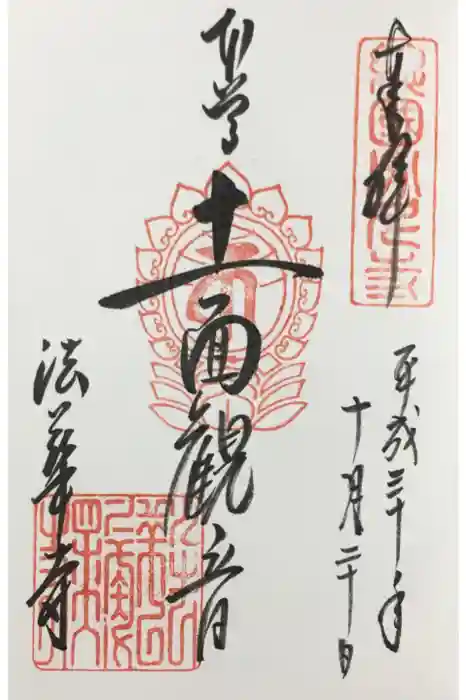 奉拝
平成三十年
十月二十日
本尊
十一面観音
法華寺